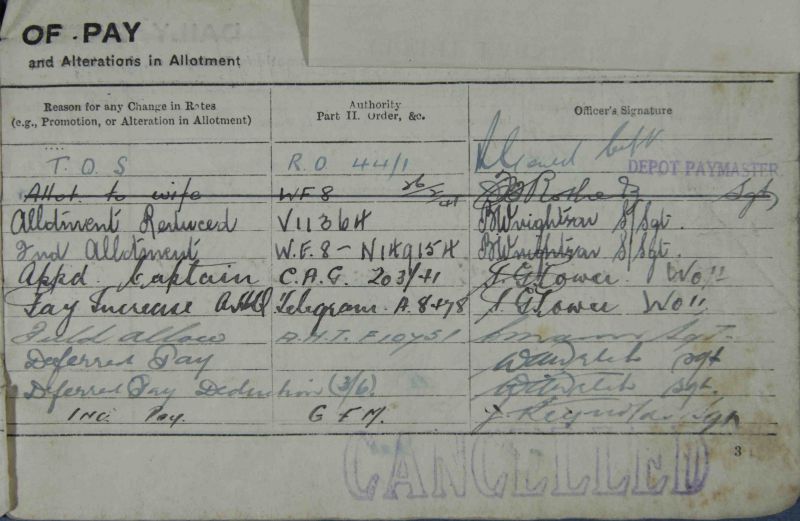 OF PAY
and Alterations in Allotment
Reason for any Change in Rates
(e.g., Promotion, or Alteration in Allotment)
Authority
Part II. Order, &c.
Officer's Signature
T.O.S R.O 44/1 Capt
DEPOT PAYMASTER
Allot. to wife WF8 26/5/41 Sgt
Allotment Reduced V11364 B Wrightson S/Sgt.
2nd Allotment W.F.8 - N149154 B Wrightson S/Sgt.
Appd. Captain C.A.G. 203/41 WO11
Pay Increase AHQ Telegram A.8478 WO11
Field allow A.H.T. F10751 Sgt.
Deferred Pay Sgt
Deferred Pay Deduction (3/6) Sgt.
Inc. Pay. G F M. J Reynolds Sgt
CANCELLED
3